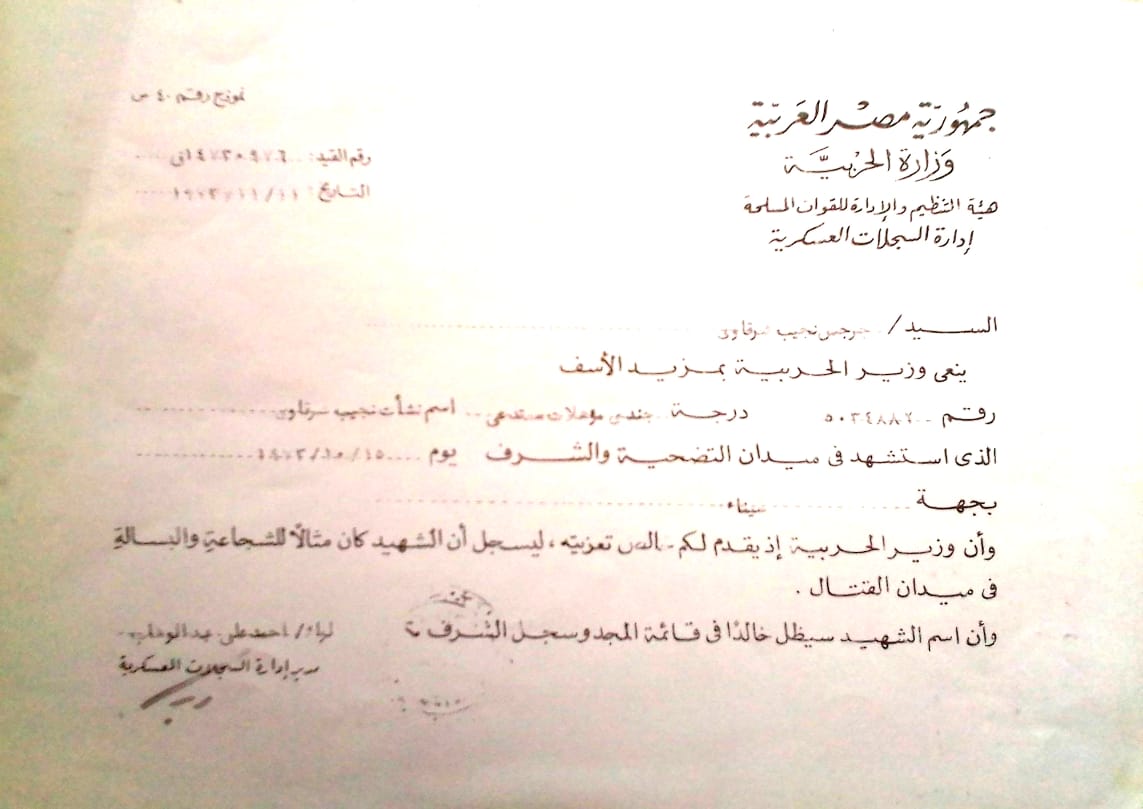 جمهورية مصر العربية
وزارة الحربية
هيئة التنظيم والإدارة للقوات المسلحة
إدارة السجلات العسكرية
نموذج رقم ٤٠ س
رقم القيد:
التاريخ: ١٩٧٣/١١/١١
السيد / جرجس نجيب
ينعى وزير الحربية بمزيد الأسف
رقم درجة جندى مؤهلات مستدعى اسم نشأت نجيب
الذى استشهد فى ميدان التضحية والشرف يوم ١٩٧٣/١٠/١٥
بجهة سيناء
وأن وزير الحربية إذ يقدم لكم خالص تعزيته، ليسجل أن الشهيد كان مثالًا للشجاعة والبسالة
فى ميدان القتال.
وأن اسم الشهيد سيظل خالدًا فى قائمة المجد وسجل الشرف
لواء / احمد على عبد الوهاب
مدير إدارة السجلات العسكرية